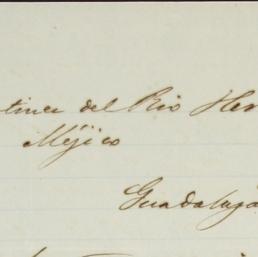 tinez del Rio Her
Méjico
Guadalaja